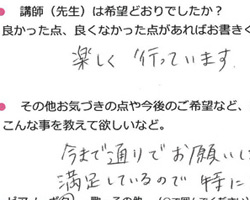 ● 講師（先生）は希望どおりでしたか？
良かった点、良くなかった点があればお書きく
楽しく 行っています.
● その他お気づきの点や今後のご希望など、
こんな事を教えて欲しいなど。
今まで通りでお願いし
満足しているので 特に